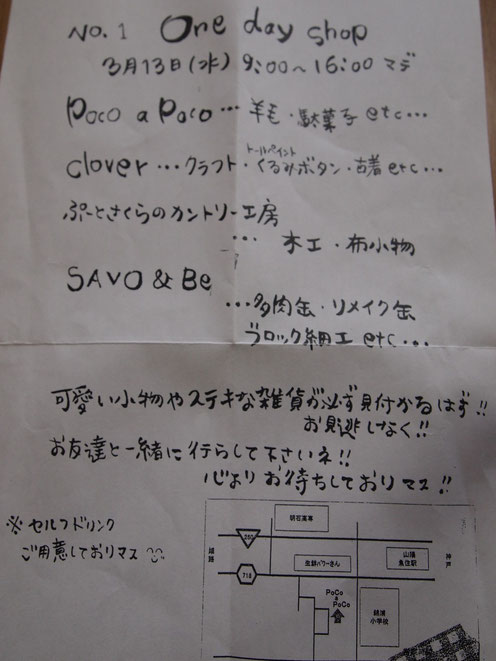 No.1 One day shop
3月13日(水) 9:00〜16:00マデ
Poco a Poco… 羊毛・駄菓子 etc…
トールペイント
clover…クラフト・くるみボタン・古着etc…
ぷーとさくらのカントリー工房
… 木工・布小物
SAVO & Be
…多肉缶・リメイク缶
ブロック細工 etc…
可愛い小物やステキな雑貨が必ず見付かるはず!!
お見逃しなく!!
お友達と一緒に行らして下さいネ!!
心より お待ちしておりマス!!
※セルフドリンク
ご用意しておりマス
明石高専
250
姫路
生鮮パワーさん
山陽
魚住駅
神戸
718
PoCo
a
PoCo
錦浦
小学校